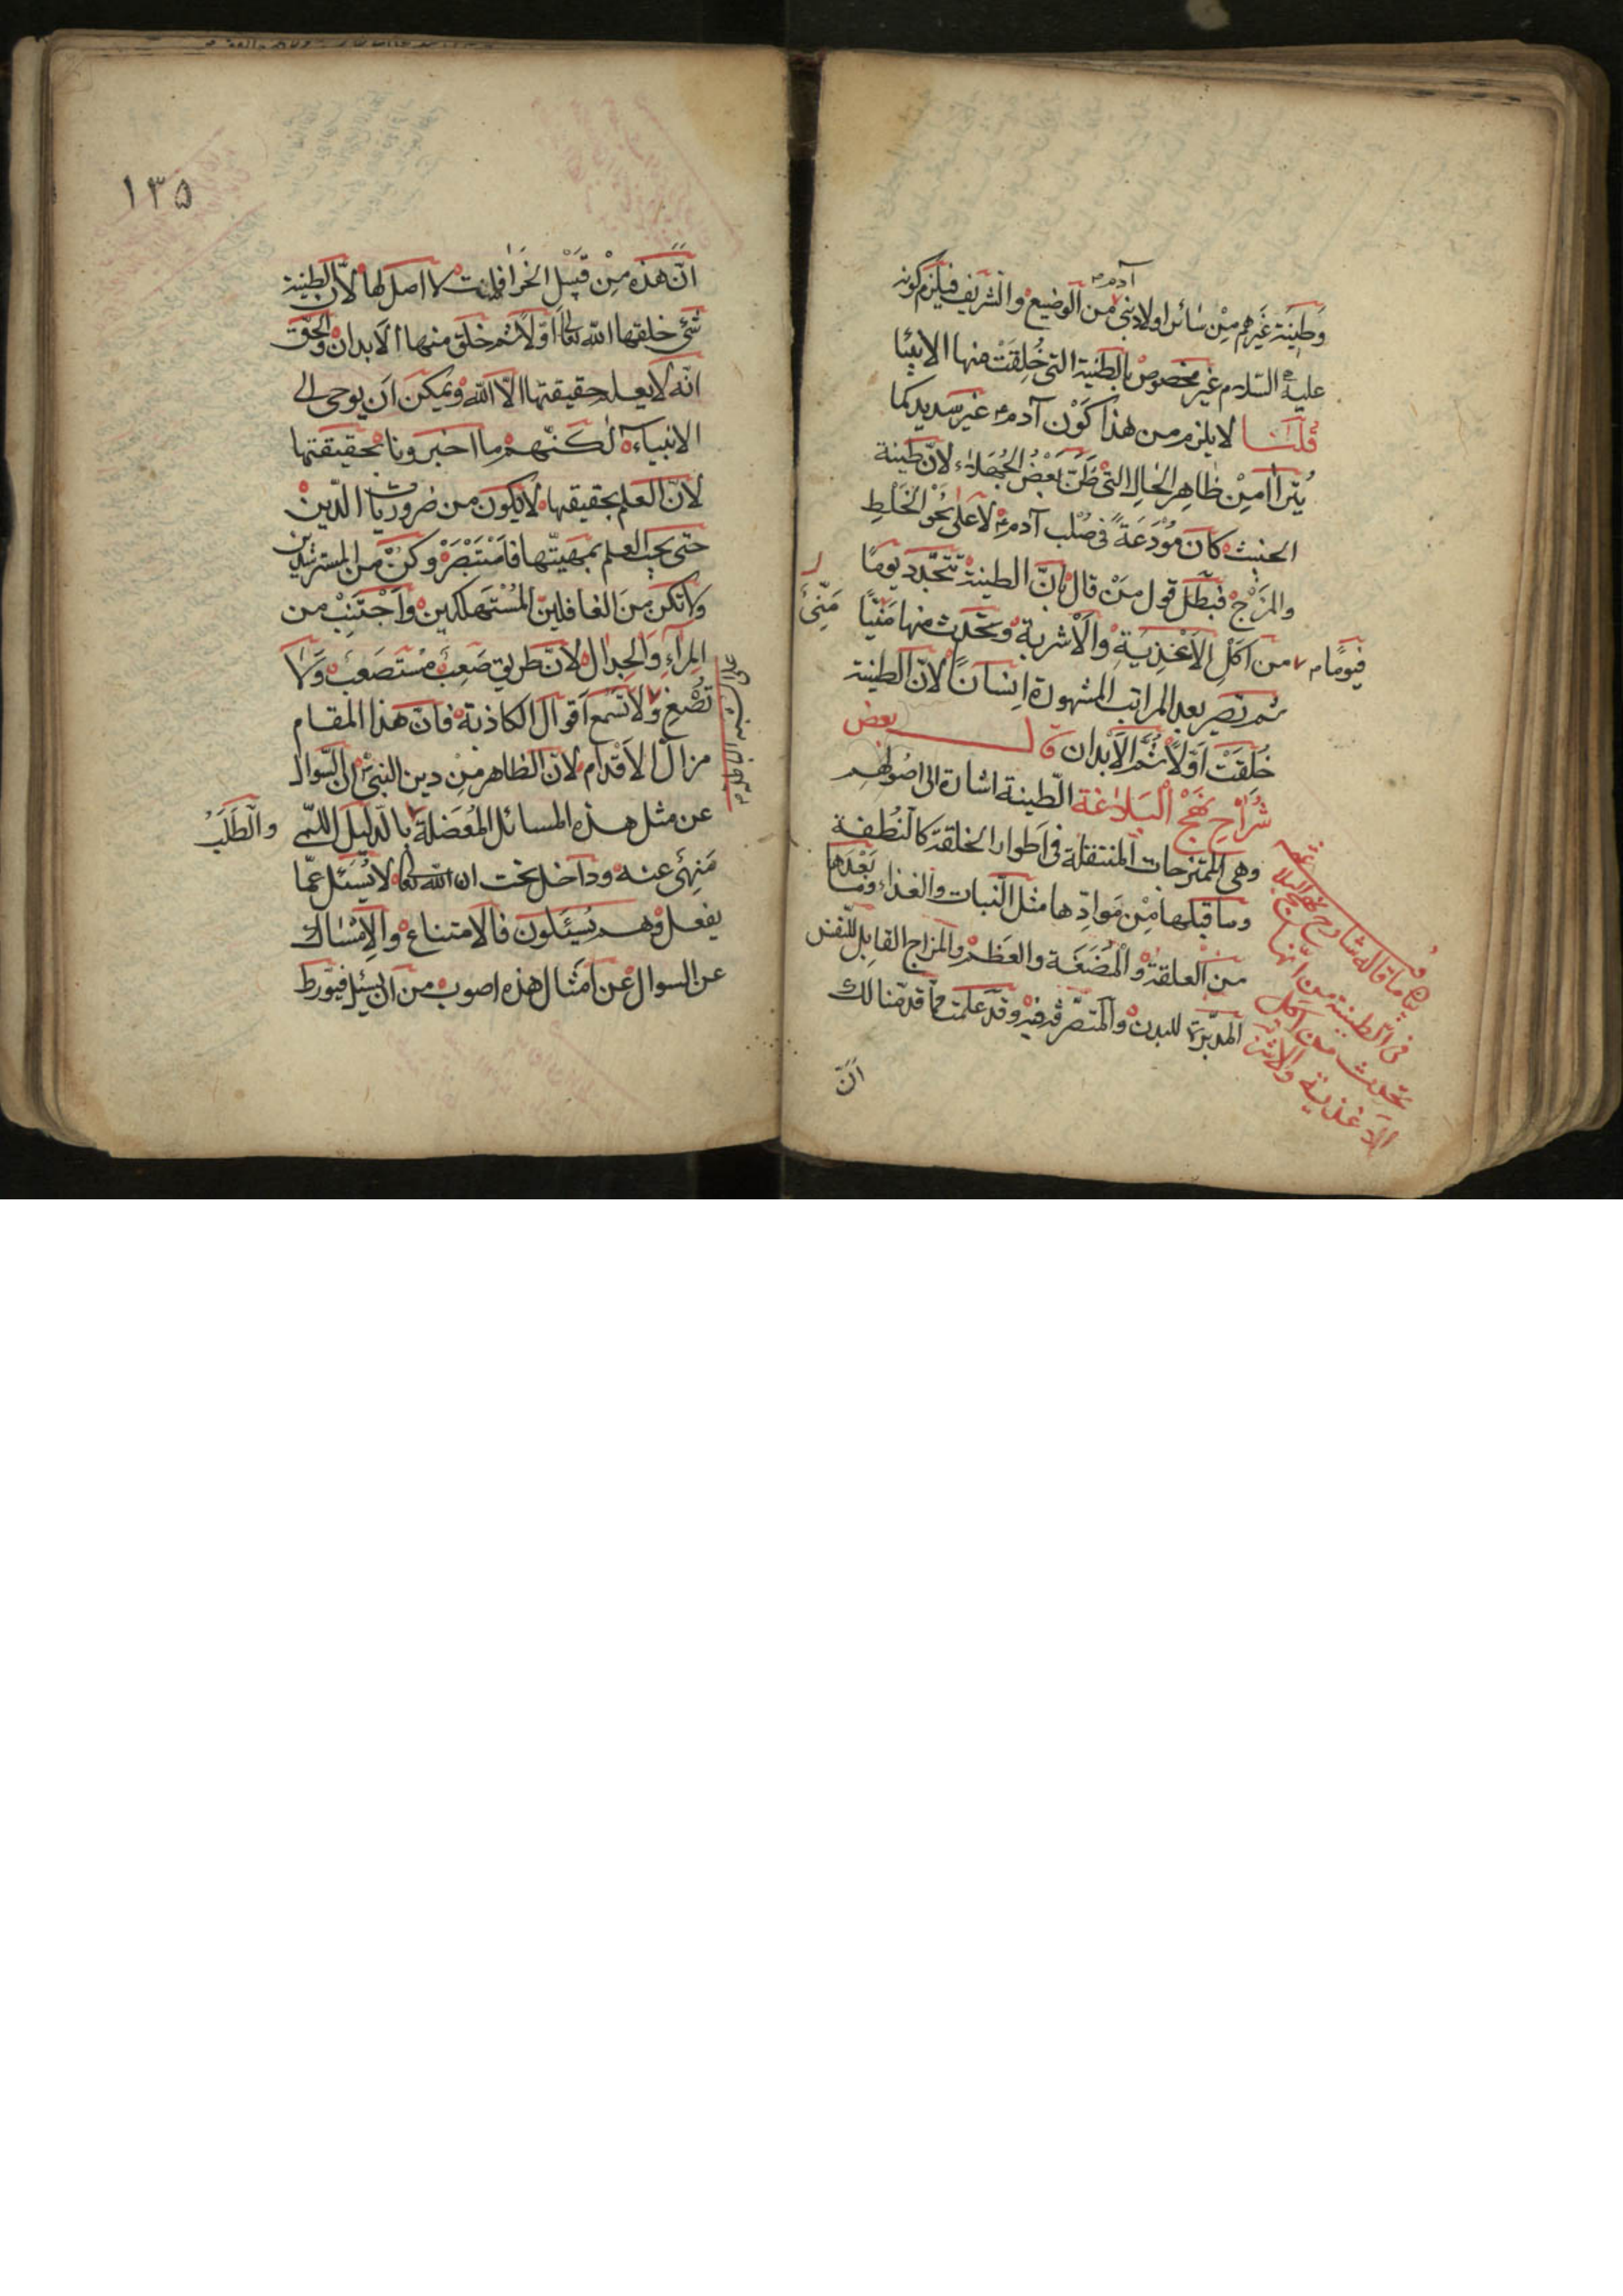 وَطِينَة غَيرهم مِنْ سٰائر اولاد بنى آدم من الوضيع والشريف فيلزم كونه
عليه السّلام غير مخصوص بالطينة التى خُلِقَتْ منها الانبيٰا
قلنا لا يلزم من هذا كَوْن آدم ع غير سديد كما
يُتَرٰا مِنْ ظٰاهِرِ الحٰال التى ظَنّ بَعْضُ الجُهَلاء لانّ طينة
الخبيث كان مُوْدَعَةً فى صُلب آدم ع لا على نَحْوِ الخَلْطِ
والمَزْج فبَطَلَ قول مَنْ قال بانّ الطينة تتجَدّد يومًا
فيومًا من اَكْلِ الاَغْذِيَةِ والاَشربة ويَحْدث منها مَنيًّا
مَنِّىّ
ثم تصير بعد المراتب المشهورة اِنسٰانًا لانّ الطينة
خُلِقَتْ اَوّلاً ثُمَّ الاَبدان قال بعض
شُرّاحِ نَهْجِ البَلاغة الطّينة اشارة الى اصُولهم
وهى الممتزجات المنتقلة فى اَطوار الخلقة كالنُطفة
وما قبلها مِنْ مَوادّها مثل النّبات والغذاء وما بَعْدَها
من العلقة والْمُضَغَة والعَظم والمزاج القابِل للنّفس
المدبّرة للبدن والمتصرّفة فيه وقد علمت مما قدّمنا لك
انّ
ما قاله شارح نهج البلاغة
فى الطينة من انّها
تحدث من اكل
الاغذية والاشربة
١٣٥
انّ هَذه مِنْ قَبِيْلِ الخَرٰافات لا اصل لها لانّ الطينة
شئ خلقها الله تعالى اَوّلاً ثم خَلق منها الاَبدان والحقّ
انّه لا يعلم حقيقتها الاّ الله ويمكن اَن يوحى الى
الانبياء لٰكنّهم ما اخبرونا بحقيقتها
لانّ العلم بحقيقتها لا يكون من ضروريّات الدّين
حتى يجب العلم بمهيّتها فاسْتَبْصِرْ وكُنْ من المسترشدين
ولا تكن مِنَ الغافلين المُسْتَهلكين واَجْتَنِبْ من
المِرآءِ والجِدٰال لانّ طريق صَعِبٌ مُسْتَصْعَبٌ وَلاٰ
تُصْغِ ولا تَسْمع اَقوال الكاذبة فانّ هذا المقام
مزالّ الاَقدٰام لانّ الظاهر مِن دين النبىّ ص انّ السّوال
عن مثل هذه المسائل المُعْضَلة بالدّليل اللمّى
والطَلَبُ
مَنهِىّ عنه وداخل تحت ان الله تعالى لا يُسْئَل عمّا
يفعل وهم يُسْئَلون فالامتناع والاِمْسٰاك
عن السوال عَن اَمثٰال هذه اصوب من ان يسئل فيتورّط